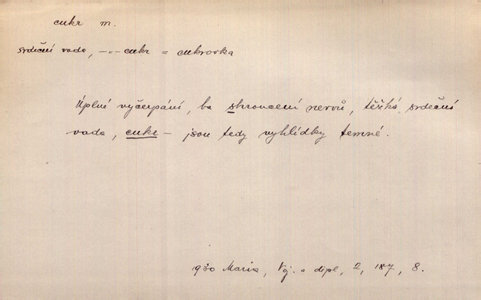 cukr m.
srdeční vada, --- cukr = cukrovka
Úplné vyčerpání, ba zhroucení nervů, těžká srdeční
vada, cukr – jsou tedy vyhlídky temné.
930 Maria, Voj. a dipl, 2, 187, 8.